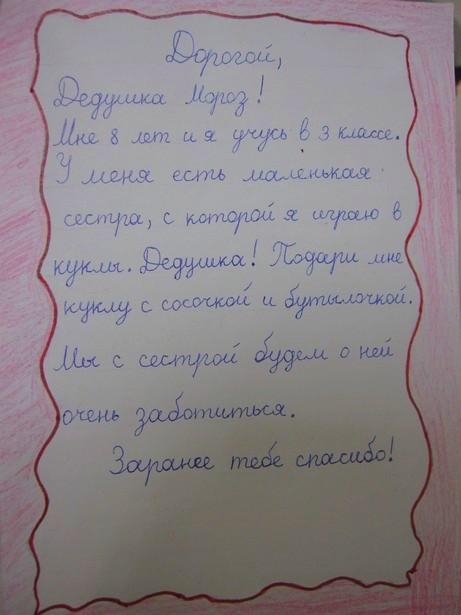 Дорогой,
Дедушка Мороз!
Мне 8 лет и я учусь в 3 классе.
У меня есть маленькая
сестра, с которой я играю в
куклы. Дедушка! Подари мне
куклу с сосочкой и бутылочкой.
Мы с сестрой будем о ней
очень заботиться.
Заранее тебе спасибо!